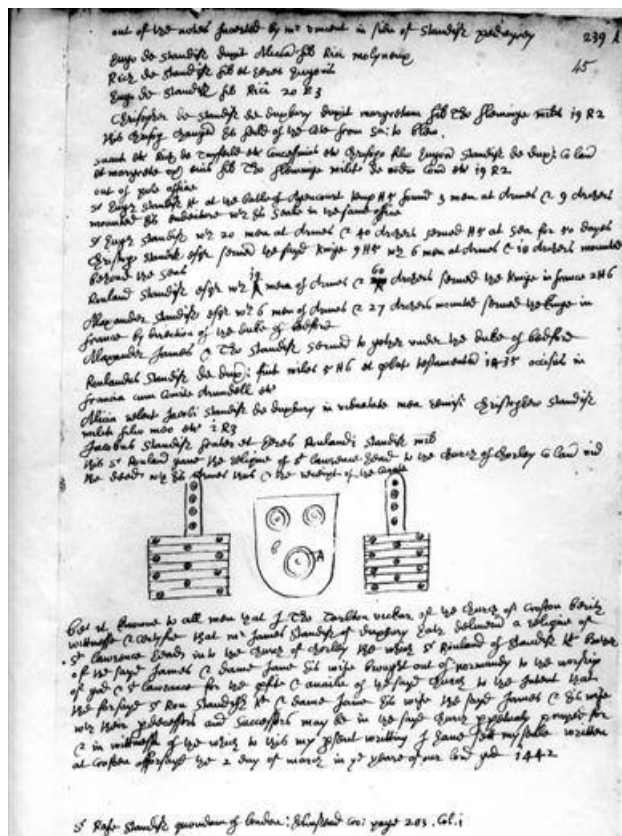 out of the notes inserted by mr vincent in side of Standish pedegrey
239
45
Hugo de Standish duxit Aliciam fil Rici molyneux
Ricus de Standish fil et heres Hugonis
Hugo de Standish fil Rici 20 R3
Christopher de Standish de duxbury duxit margretam fil Tho fleminge milit 19 R2
this changed the feild of the Cote from Sa: to blew.
out of pole office
Sr Hugh Standish kt at the battle of Agencourt temp H5 found 3 men at Armes & 9 Archers
mounted his endenture wth his Seale in the same office
Sr Hugh Standish wth 20 men at Armes & 40 Archers served H5 at Sea for 40 dayes
Christop Standish esqr served the sayd kinge 9 H5 wth 6 men at Armes & 18 Archers mounted
beyond the Seas
Rouland Standish esqr wth 19 men of Armes & 60 Archers served the kinge in france 2 H6
Alexander Standish esqr wth 6 men of Armes & 27 Archers mounted served the kinge in
france by direction of the duke of bedford
Alexander James & Tho Standish served to gether under the duke of bedford
Roulandus Standish de dux: fuit miles 5 H6 et probat testamentum 1435 occisus in
francia cum Comite Arundell etc
Alicia relict Jacobi Standish de duxbury in viduitate mea remisi Christophero Standish
militi filio meo etc 1 R3
Jacobus Standish frater et heres Roulandi Standish milit
this Sr Rouland gave the relique of St laurence head to the church of Chorley Co lan vid
the deed wth his Armes that & the receipt of the
6
A
bee it knowne to all men that I Tho Tarlton vickar of the church of Croston berith
wittnesse & certyfie that mr James Standish of duxbury hath deliverd a relique of
St laurence heade in to the church of chorley the which Sr Rouland of Standish kt brother
of the sayd James & dame Jane his wife brought out of normandy to the worship
of god & St laurence for the profte & availe of the sayd church to the Intent that
the forsayd Sr Rou Standish kt & dame Jane his wife the sayd James & his wife
wth their predecessors and successors may be in the sayd church perpetualy prayed for
& in wittnesse of the which to this my present writting I have sett my seale written
at Croston afforsayd the 2 day of march in ye yeare of our lord god 1442
Sr Rafe Standish quondam of london: page 203. Col. 1